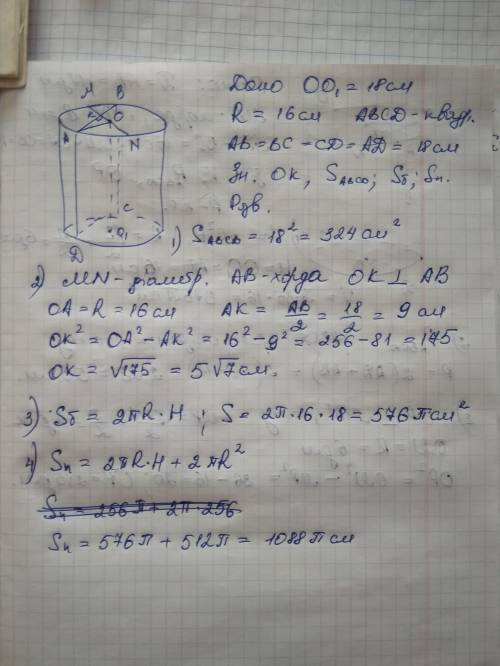 M B
O
A N
C
O₁
D
Дано OO₁ = 18 см
R = 16 см ABCD - квадр.
AB = BC - CD = AD = 18 см
Зн. OK, S ABCD; Sб; Sп.
1) S ABCD = 18² = 324 см²
2) MN - діаметр. AB - хорда OK ⊥ AB
OA = R = 16 см AK = AB/2 = 18/2 = 9 см
OK² = OA² - AK² = 16² - 9² = 256 - 81 = 175.
OK = √175 = 5√7 см.
3) Sб = 2πR·H ; S = 2π·16·18 = 576π см²
4) Sп = 2πR·H + 2πR²
Sп = 256π + 2π·256
Sп = 576π + 512π = 1088π см